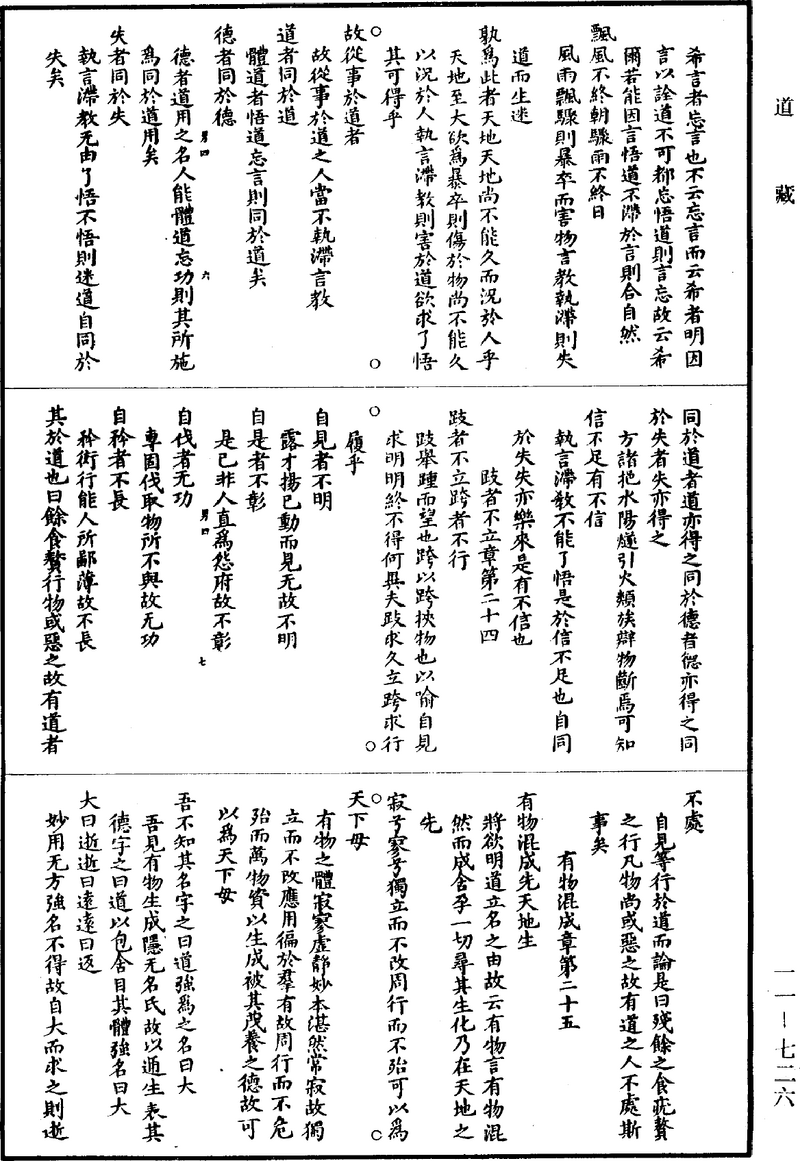 道藏
一一—七二六
希言者忘言也不云忘言而云希者明因
言以詮道不可都忘悟道則言忘故云希
爾若能因言悟道不滯於言則合自然
飄風不終朝驟雨不終日
風雨飄驟則暴卒而害物言教執滯則失
道而生迷
孰為此者天地天地尚不能久而況於人乎
天地至大欲為暴卒則傷於物尚不能久
以況於人執言滯教則害於道欲求了悟
其可得乎
故從事於道者
故從事於道之人當不執滯言教
道者同於道
體道者悟道忘言則同於道矣
德者同於德
男四 六
德者道用之名人能體道忘功則其所施
為同於道用矣
失者同於失
執言滯教无由了悟不悟則迷道自同於
失矣
同於道者道亦得之同於德者德亦得之同
於失者失亦得之
方諸挹水陽燧引火類族辯物斷焉可知
信不足有不信
執言滯教不能了悟是於信不足也自同
於失失亦樂來是有不信也
跂者不立章第二十四
跂者不立跨者不行
跂舉踵而望也跨以跨挾物也以喻自見
求明明終不得何異夫跂求久立跨求行
履乎
自見者不明
露才揚己動而見无故不明
自是者不彰
是己非人直為怨府故不彰
男四 七
自伐者无功
專固伐取物所不與故无功
自矜者不長
矜衒行能人所鄙薄故不長
其於道也曰餘食贅行物或惡之故有道者
不處
自見等行於道而論是曰殘餘之食疣贅
之行凡物尚或惡之故有道之人不處斯
事矣
有物混成章第二十五
有物混成先天地生
將欲明道立名之由故云有物言有物混
然而成含孕一切尋其生化乃在天地之
先
寂兮寥兮獨立而不改周行而不殆可以為
天下母
有物之體寂寥虛靜妙本湛然常寂故獨
立而不改應用徧於羣有故周行而不危
殆而萬物資以生成被其茂養之德故可
以為天下母
吾不知其名字之曰道強為之名曰大
吾見有物生成隱无名氏故以通生表其
德字之曰道以包含目其體強名曰大
大曰逝逝曰遠遠曰返
妙用无方強名不得故自大而求之則逝